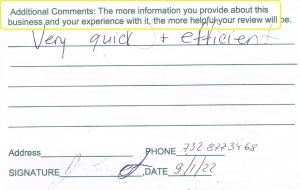 Additional Comments: The more information you provide about this
business and your experience with it, the more helpful your review will be.
Very quick + efficient
Address PHONE 732-8773468
SIGNATURE ,DATE 9/1/22